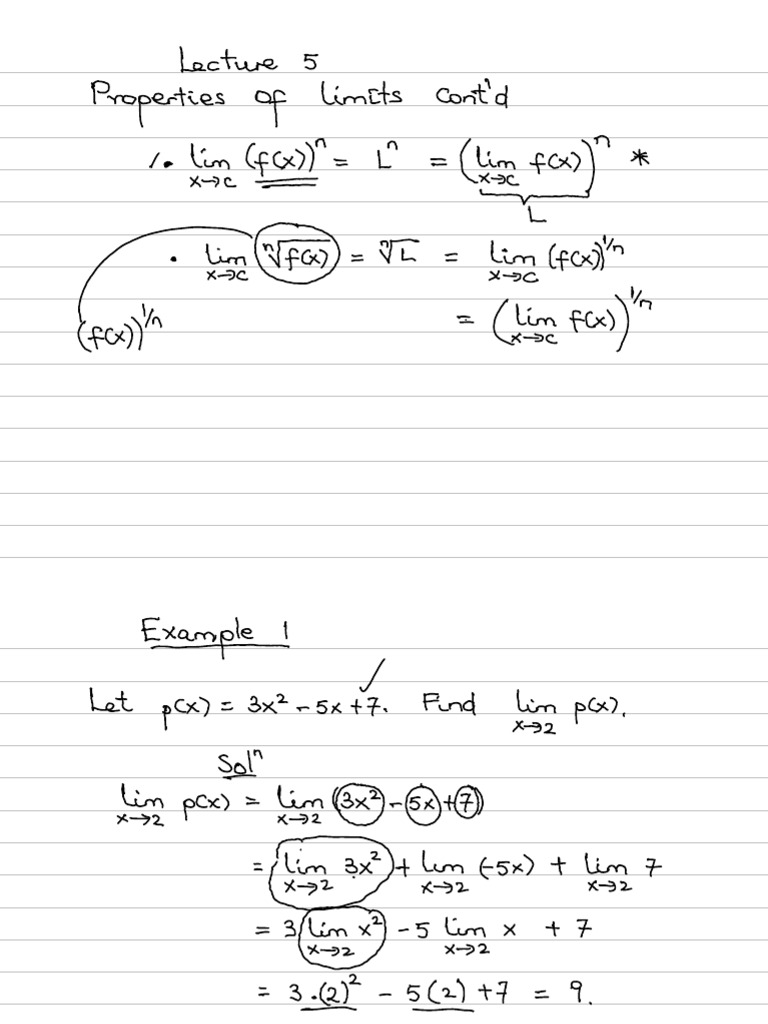 Lecture 5
Properties of limits cont'd
1. lim x→c (f(x))ⁿ = Lⁿ = (lim x→c f(x))ⁿ *
L
• lim x→c ⁿ√f(x) = ⁿ√L = lim x→c (f(x))^1/n
(f(x))^1/n = (lim x→c f(x))^1/n
Example 1
Let p(x) = 3x² - 5x + 7. Find lim x→2 p(x).
Solⁿ
lim x→2 p(x) = lim x→2 (3x² - 5x + 7)
= lim x→2 3x² + lim x→2 (-5x) + lim x→2 7
= 3 lim x→2 x² - 5 lim x→2 x + 7
= 3.(2)² - 5(2) + 7 = 9.